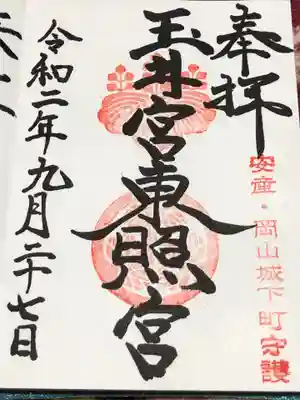 奉拝
安産・岡山城下町守護
玉井宮東照宮
令和二年九月二十七日